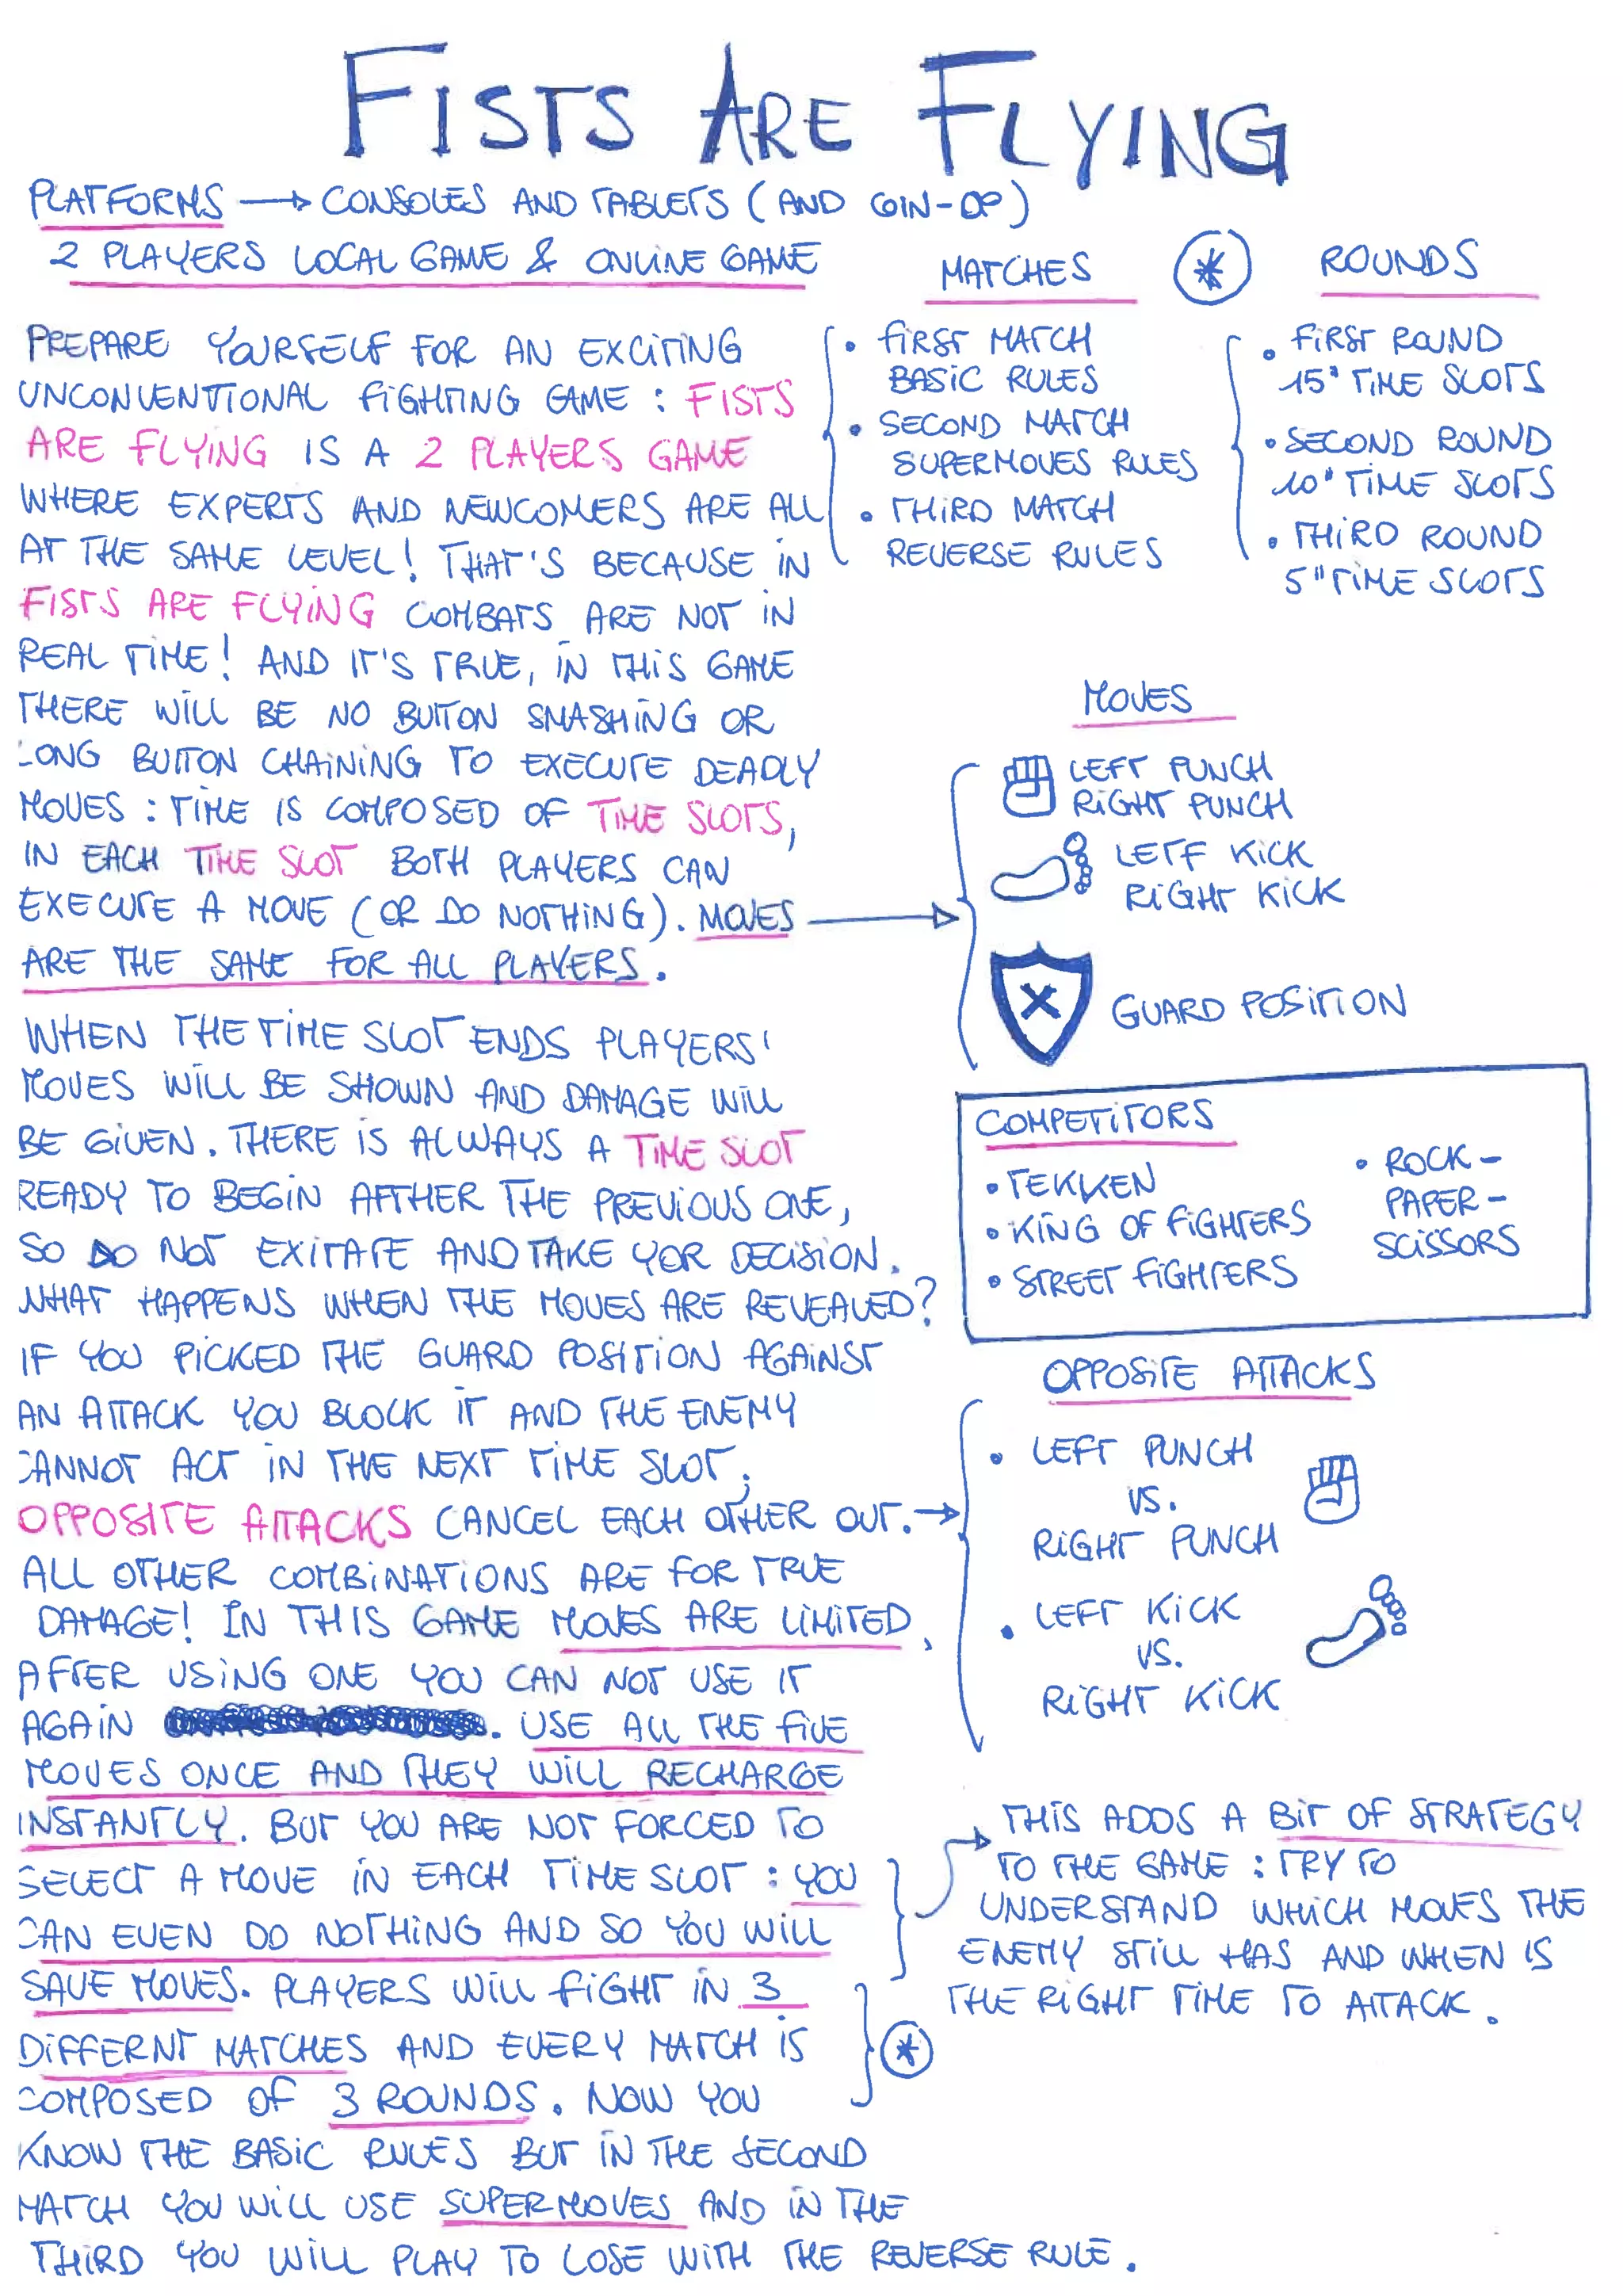 FISTS ARE FLYING
PLATFORMS → CONSOLES AND TABLETS (AND COIN-OP)
2 PLAYERS LOCAL GAME & ONLINE GAME
PREPARE YOURSELF FOR AN EXCITING
UNCONVENTIONAL FIGHTING GAME : FISTS
ARE FLYING IS A 2 PLAYERS GAME
WHERE EXPERTS AND NEWCOMERS ARE ALL
AT THE SAME LEVEL! THAT'S BECAUSE IN
FISTS ARE FLYING COMBATS ARE NOT IN
REAL TIME! AND IT'S TRUE, IN THIS GAME
THERE WILL BE NO BUTTON SMASHING OR
LONG BUTTON CHAINING TO EXECUTE DEADLY
MOVES : TIME IS COMPOSED OF TIME SLOTS,
IN EACH TIME SLOT BOTH PLAYERS CAN
EXECUTE A MOVE (OR DO NOTHING). MOVES
ARE THE SAME FOR ALL PLAYERS.
WHEN THE TIME SLOT ENDS PLAYERS'
MOVES WILL BE SHOWN AND DAMAGE WILL
BE GIVEN. THERE IS ALWAYS A TIME SLOT
READY TO BEGIN AFTHER THE PREVIOUS ONE,
SO DO NOT EXITATE AND TAKE YOR DECISION.
WHAT HAPPENS WHEN THE MOVES ARE REVEALED?
IF YOU PICKED THE GUARD POSITION AGAINST
AN ATTACK YOU BLOCK IT AND THE ENEMY
CANNOT ACT IN THE NEXT TIME SLOT.
OPPOSITE ATTACKS CANCEL EACH OTHER OUT. →
ALL OTHER COMBINATIONS ARE FOR TRUE
DAMAGE! IN THIS GAME MOVES ARE LIMITED,
AFTER USING ONE YOU CAN NOT USE IT
AGAIN . USE ALL THE FIVE
MOVES ONCE AND THEY WILL RECHARGE
INSTANTLY. BUT YOU ARE NOT FORCED TO
SELECT A MOVE IN EACH TIME SLOT : YOU
CAN EVEN DO NOTHING AND SO YOU WILL
SAVE MOVES. PLAYERS WILL FIGHT IN 3
DIFFERNT MATCHES AND EVERY MATCH IS
COMPOSED OF 3 ROUNDS. NOW YOU
KNOW THE BASIC RULES BUT IN THE SECOND
MATCH YOU WILL USE SUPERMOVES AND IN THE
THIRD YOU WILL PLAY TO LOSE WITH THE REVERSE RULE.
*
MATCHES
• FIRST MATCH
BASIC RULES
• SECOND MATCH
SUPERMOVES RULES
• THIRD MATCH
REVERSE RULES
*
ROUNDS
• FIRST ROUND
15" TIME SLOTS
• SECOND ROUND
10" TIME SLOTS
• THIRD ROUND
5" TIME SLOTS
MOVES
LEFT PUNCH
RIGHT PUNCH
LETF KICK
RIGHT KICK
GUARD POSITION
COMPETITORS
• TEKKEN
• KING OF FIGHTERS
• STREET FIGHTERS
• ROCK-
PAPER-
SCISSORS
OPPOSITE ATTACKS
• LEFT PUNCH
VS.
RIGHT PUNCH
• LEFT KICK
VS.
RIGHT KICK
THIS ADDS A BIT OF STRATEGY
TO THE GAME : TRY TO
UNDERSTAND WHICH MOVES THE
ENEMY STILL HAS AND WHEN IS
THE RIGHT TIME TO ATTACK.